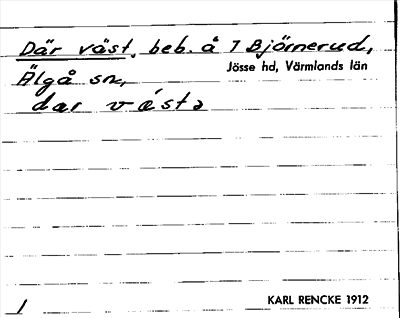 Där väst, beb. å 7 Björnerud,
Jösse hd, Värmlands län
Älgå sn,
dar västa
1
KARL RENCKE 1912